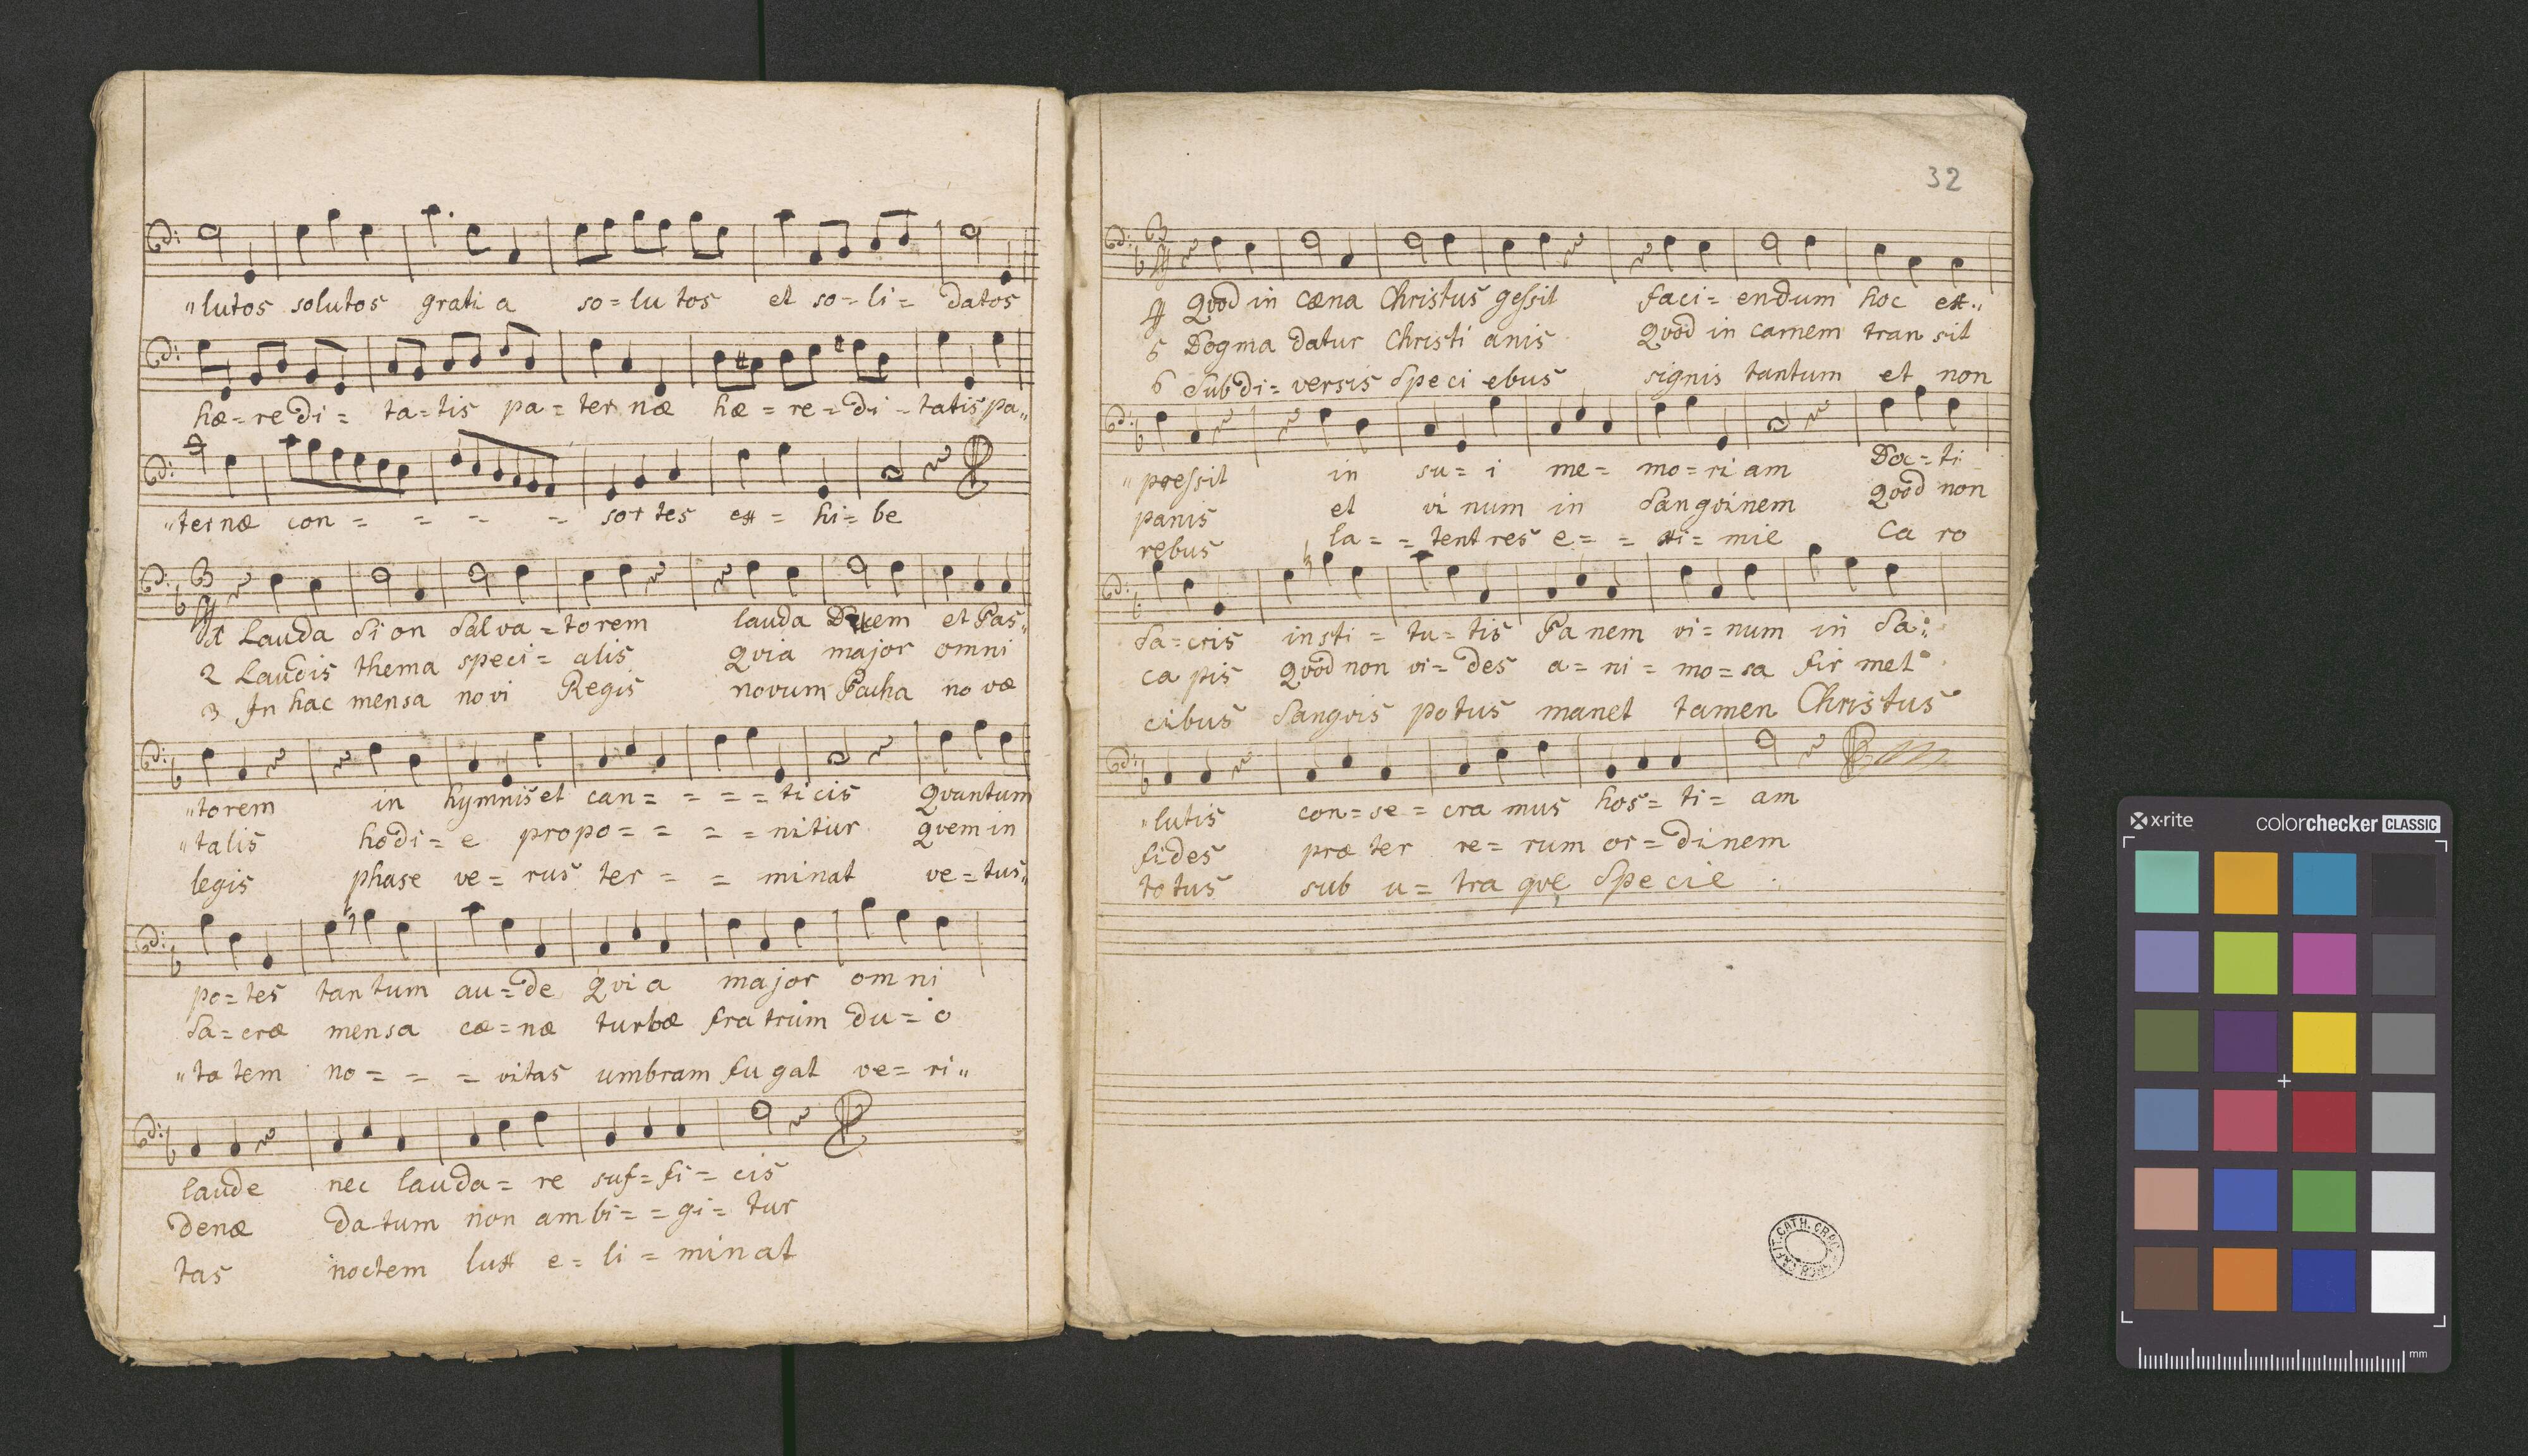 "lutos solutos grati a so=lu tos et so=li= datos
hæ=re di= ta=tis pa=ter næ hæ=re=di-tatis pa"
"ternæ con= = = = sortes ex= hi=be
3
4
1 Lauda Sion Salva=torem lauda Ducem et Pas"
2 Laudis thema speci= alis Qvia major omni
3 In hac mensa novi Regis novum Pascha novæ
"torem in hymnis et can= = = = ti cis Qvantum
"talis hodi=e propo= = = = nitur Qvem in
legis phase ve=rus ter= = minat ve=tus"
po=tes tantum au=de Qvia major omni
Sa=cræ mensa cæ=næ turbæ fratrum du=o
"ta tem no= = = vitas umbram fugat ve=ri"
laude nec lauda=re suf=fi=cis
denæ datum non ambi= =gi=tur
tas noctem lux e=li=minat
32
3
4
4 Qvod in cæna Christus gessit faci=endum hoc ex"
5 Dogma datur Christi anis Qvod in carnem tran sit
6 Sub di=versis Speci ebus signis tantum et non
"pressit in su=i me= mo=ri am Doc=ti
panis et vi num in Sangvinem Qvod non
rebus la= =tent res e= = xi=miæ Ca ro
Sa=cris insti=tu=tis Pa nem vi=num in Sa=
ca pis Qvod non vi=des a=ni=mo=sa fir mat
cibus Sangvis potus manet tamen Christus
"lutis con=se=cra mus hos=ti= am
fides præ ter re=rum or=dinem
totus sub u=tra qve Specie
x·rite colorchecker CLASSIC
mm